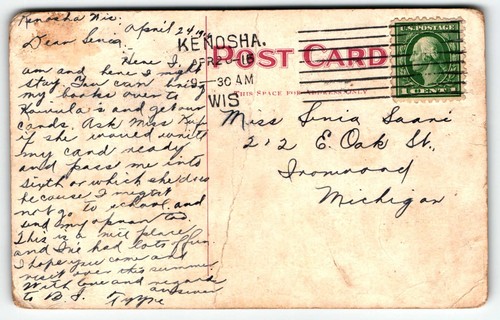 Kenosha Wis.
April 24
Dear Senia:
Here I
am and here I might
stay. You can bring
my books over to
and get our
cards. Ask Miss
if she would write
my card ready
and pass me into
sixth or which she does
because I might
not go to school, and
send my
This is a nice place
and I've had lots of fun.
I hope you come and
visit over this summer
With love and regards
to B. I. answer
KENOSHA.
APR 26 16
30 AM
WIS
POST CARD
THIS SPACE FOR ADDRESS ONLY
U.S. POSTAGE
1 CENT 1
Miss Senia Saari
212 E. Oak St.,
Ironwood
Michigan